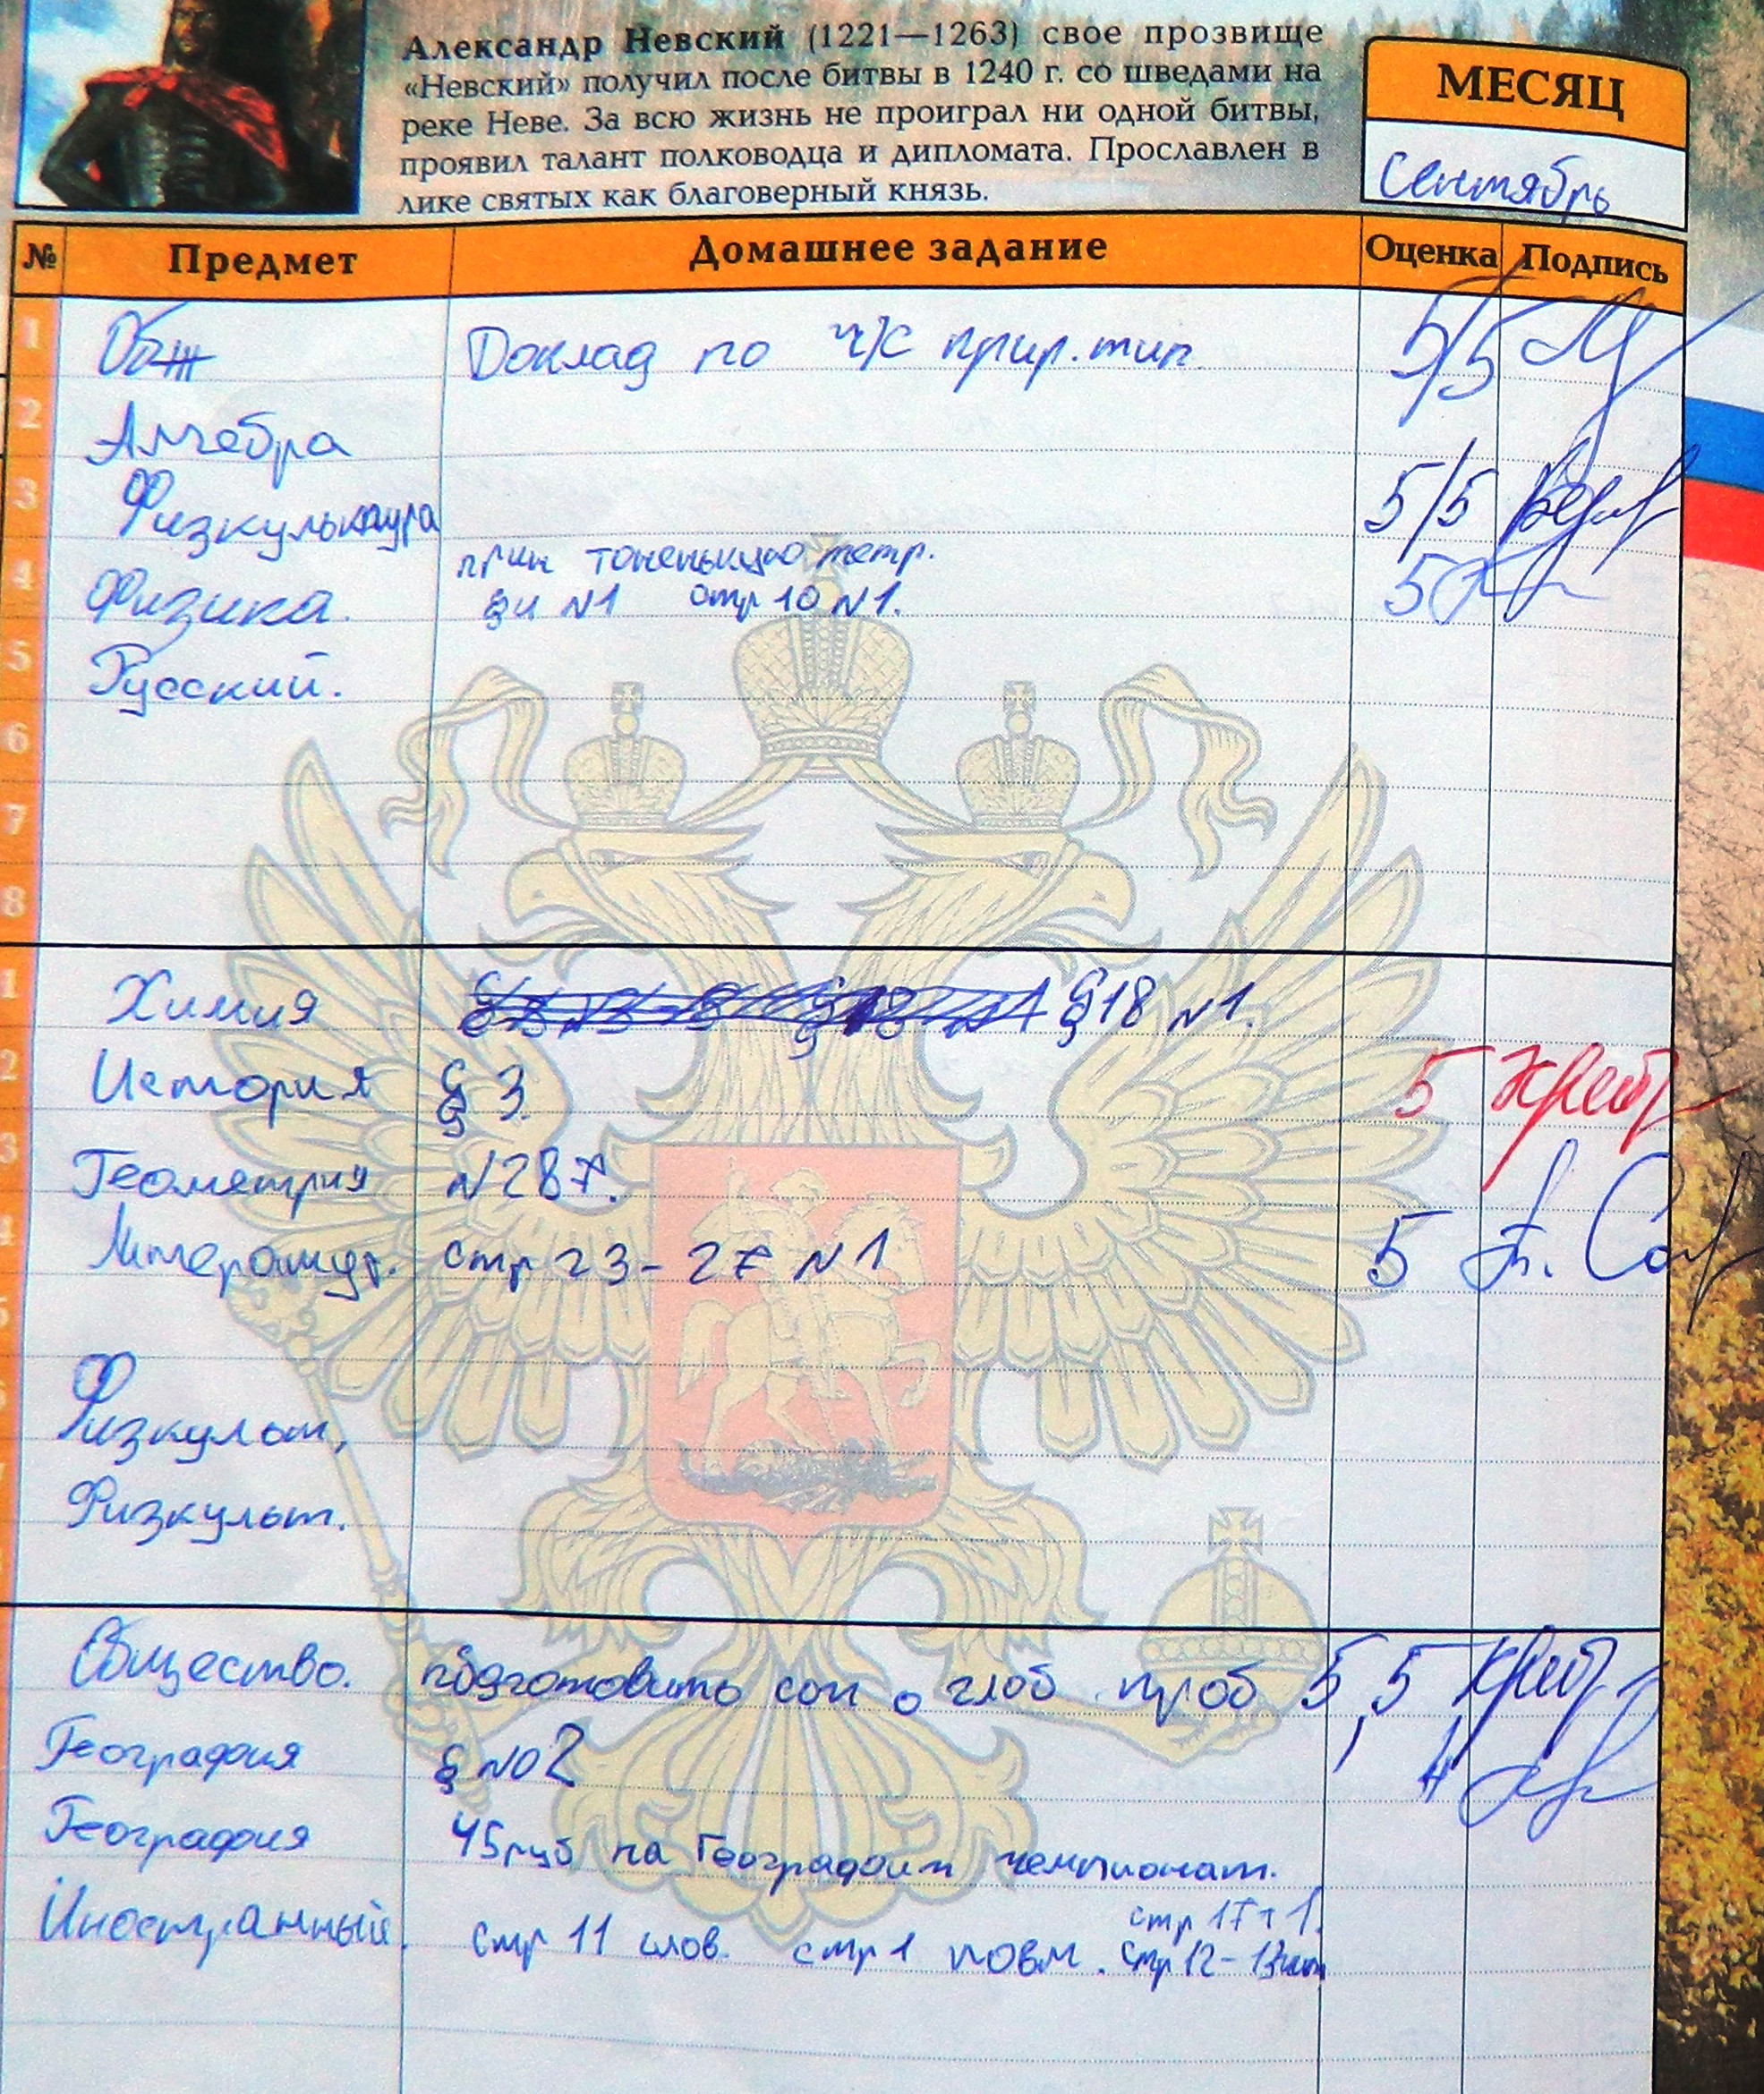 Александр Невский (1221—1263) свое прозвище
«Невский» получил после битвы в 1240 г. со шведами на
реке Неве. За всю жизнь не проиграл ни одной битвы,
проявил талант полководца и дипломата. Прославлен в
лике святых как благоверный князь.
МЕСЯЦ
Сентябрь
№ Предмет Домашнее задание Оценка Подпись
1 Обж Доклад по ч/с прир. тип. 5/5
2 Алгебра
3 Физкультура 5/5
прин тоненькую тетр.
4 Физика. стр 10 N1. 5
5 Русский.
6
7
8
1 Химия §18 N1.
2 История § 3. 5
3 Геометрия N287.
4 Литератур. стр 23-27 N1 5
5
6 Физкульт.
7 Физкульт.
Общество. подготовить соп о глоб проб 5, 5
География § N02 4
География 45руб на Географии чемпионат.
стр 17 т 1.
Иностранный. стр 11 слов. стр 1 повт. стр 12-13